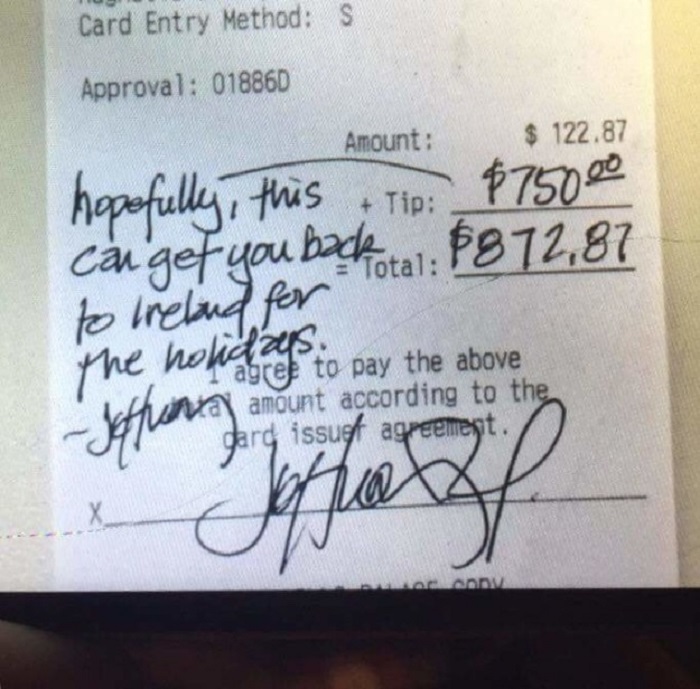 Card Entry Method: S
Approval: 01886D
Amount: $ 122.87
+ Tip: $750.00
= Total: $872.87
hopefully, this
can get you back
to Ireland for
the holidays.
- Jeffrey
I agree to pay the above
total amount according to the
card issuer agreement.
X
PALACE COPY